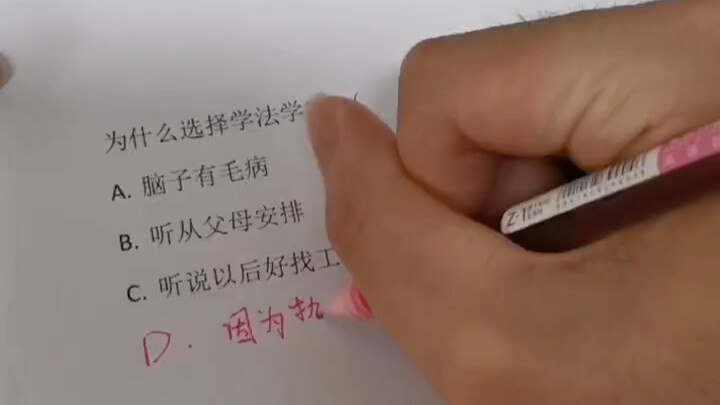 为什么选择学法学 (
A. 脑子有毛病
B. 听从父母安排
C. 听说以后好找工
D. 因为执
Z-1